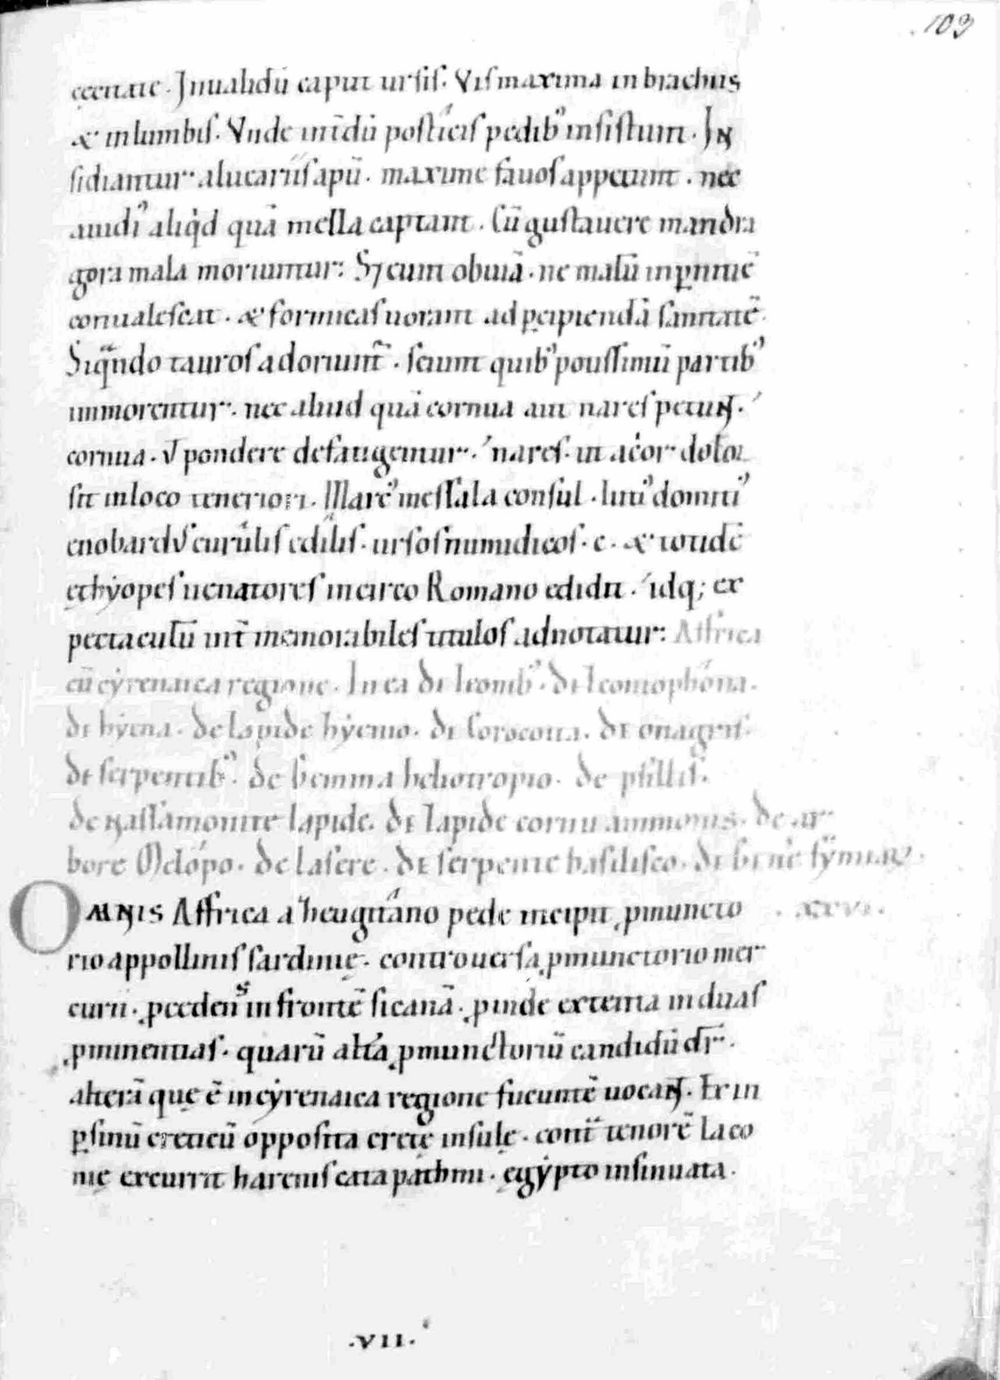 103
cęcitate. Inualidū caput ursis. Vis maxima in brachiis
& in lumbis. Vnde int̄dū posticis pedib' insistunt. IN
sidiantur alucariis apū. maxime fauos appetunt. nec
auidi' aliq̇d quā mella captant. Cū gustauere mandra
gora mala moriuntur: S; eunt obuiā. ne malū in p̱nitiē
conualescat. & formicas uorant ad ꝑcipiendā sanitatē.
Siqñdo tauros adoriunt̄. sciunt quib' potissimū partib'
immorentur. nec aliud quā cornua aut nares petuNT.
cornua. ut pondere defatigentur. nares. ut acrior dolor
sit in loco teneriori. Marc' messala consul. luci' domiti'
enobard' curulis edilis. ursos numidicos. c. & totidē
ęthyopes uenatores in circo Romano edidit. idq; ex
pectaculū int̄ memorabiles titulos adnotatur: Affrica
cū cyrenaica regione. In ea de leonib'. de leontophona.
de hyena. de lapide hyenio. de corocotta. de onagris.
de serpentib'. de gemma heliotropio. de psillis.
de Nassamonite lapide. de lapide cornu ammonis. de ar
bore Melopo. de lasere. de serpente basilisco. de gene symiarū.
OMNIS Affrica a zeugitano pede incipit, pmuncto .xxvi.
rio appollinis sardinię. controuersa, pmunctorio mer
curii. ,pcedens in frontē sicanā. ,pinde extenta in duas
,pminentias. quarū altera, pmunctoriū candidū dr̄.
alterā que ē in cyrenaica regione ficuntē uocaNT. Et in
ꝑ sinū creticū opposita cretę insulę. cont̄ tenorē laco
nię excurrit harenis catapathmi. ęgypto insinuata.
.VII.